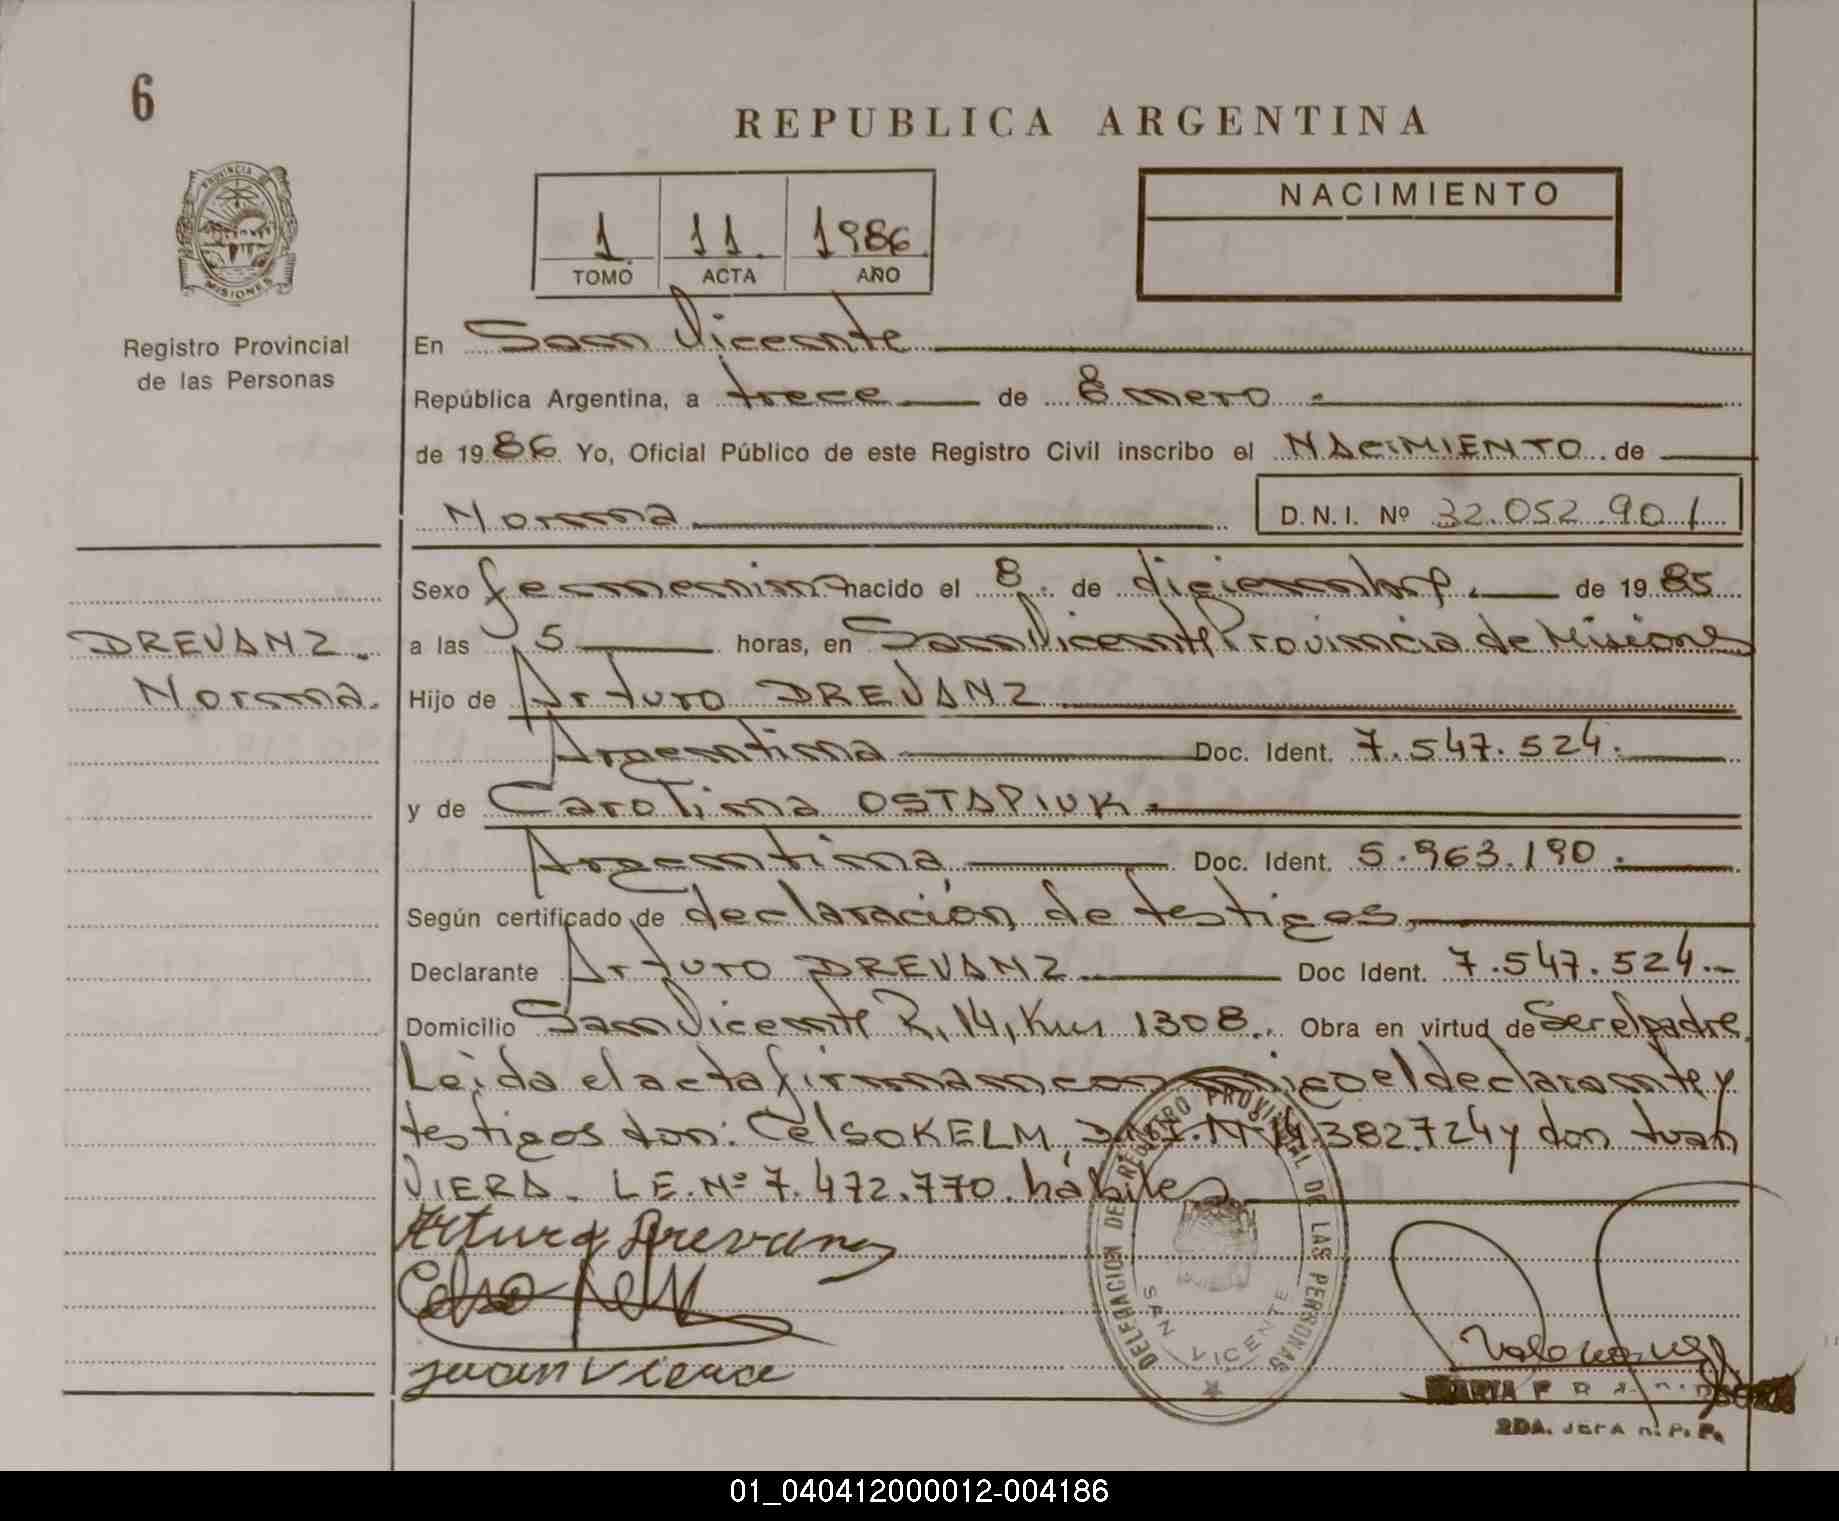 6
REPUBLICA ARGENTINA
PROVINCIA DE
MISIONES
Registro Provincial
de las Personas
1 11. 1986.
TOMO ACTA AÑO
NACIMIENTO
En San Vicente
República Argentina, a trece de Enero
de 1986 Yo, Oficial Público de este Registro Civil inscribo el NACIMIENTO de
Norma D.N.I. Nº 32.052.901
Sexo femenino nacido el 8. de diciembre. de 1985
DREVANZ.
Norma.
a las 5 horas, en San Vicente Provincia de Misiones
Hijo de Arturo DREVANZ
Argentina Doc. Ident. 7.547.524.
y de Carolina OSTAPIUK
Argentina Doc. Ident. 5.963.190.
Según certificado de declaración de testigos,
Declarante Arturo DREVANZ Doc Ident. 7.547.524.
Domicilio San Vicente R, 14, Km 1308.. Obra en virtud de Ser el padre.
Leida el acta firman conmigo el declarante y
testigos don: Celso KELM D.N.I. Nº 14.382.724 y don Juan
VIERA. L.E. Nº 7.472.770. hábiles
Arturo Drevanz
Celso Kelm
Juan Viera
DELEGACION DEL REGISTRO PROVINCIAL DE LAS PERSONAS
SAN VICENTE
MARIA
2DA. JEFA R. P. P.
01_040412000012-004186